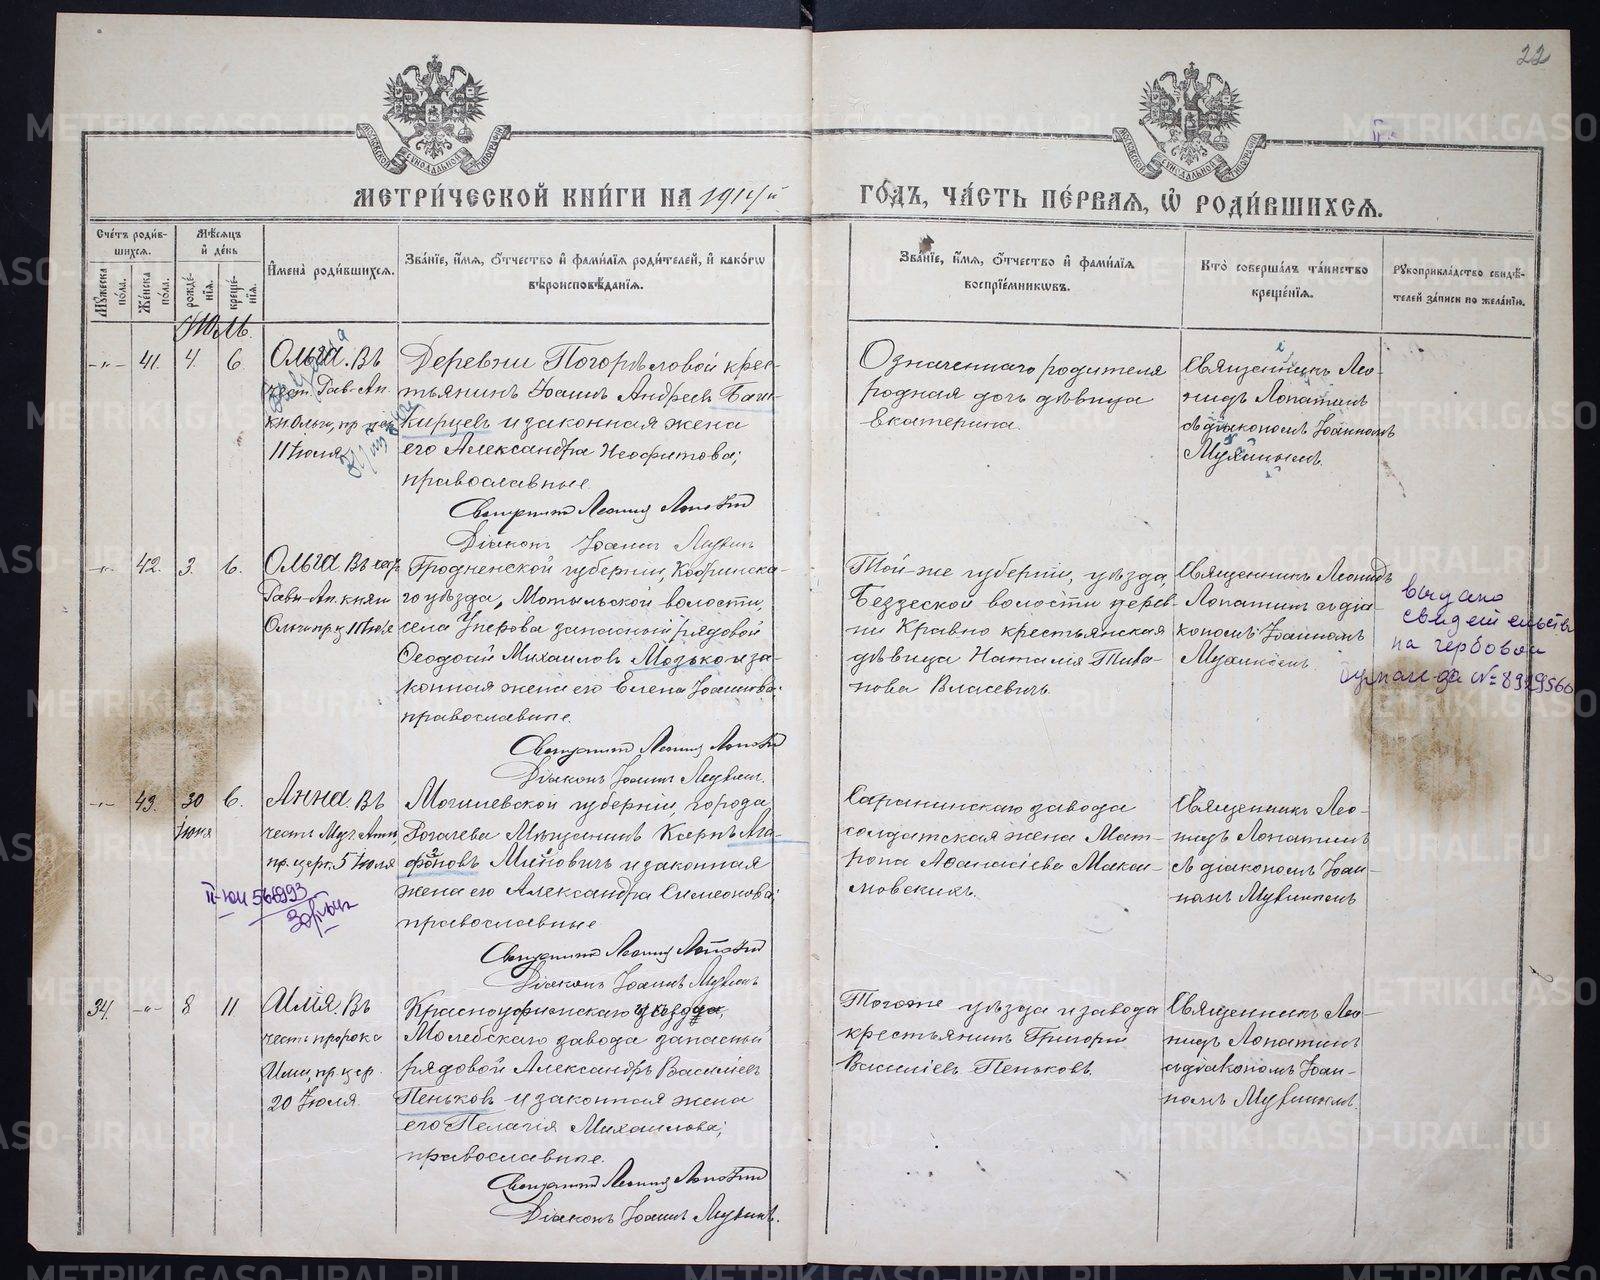 22
МЕТРИ́ЧЕСКОЙ КНИ́ГИ НА 1914й
ГО́ДЪ, ЧА́СТЬ ПЕ́РВАЯ, Ѿ РОДИ́ВШИХСЯ.
Сче́тъ роди́в-
шихся.
Мꙋ́жеска по́ла.
Же́нска по́ла.
Мѣ́сяцъ и де́нь
рожде́-
нїя.
креще́-
нїя.
И҆мена̀ роди́вшихся.
Зва́нїе, и҆́мя, ѻ҆́тчество и҆ фами́лїя роди́телей, и҆ како́гѡ
вѣроисповѣ́данїя.
Зва́нїе, и҆́мя, ѻ҆́тчество и҆ фами́лїя
воспрїе́мникѡвъ.
Кто̀ соверша́лъ та́инство
креще́нїя.
Рꙋкоприкла́дство свидѣ́-
телей за́писи по жела́нїю.
Іюль.
-„- 41. 4. 6.
Ольга. Въ
чест. Рав-Ап.
кн Ольги, пр.
11 Іюля
Деревни Погорѣловой крес-
тьянинъ Іоаннъ Андреевъ Баш-
кирцевъ и законная жена
его Александра Неофитова;
православные.
Священникъ Леонидъ Лопатинъ
Діаконъ Іоаннъ Мухинъ
Означеннаго родителя
родная дочь дѣвица
Екатерина.
Священникъ Лео-
нидъ Лопатинъ
съ діакономъ Іоанномъ
-„- 42. 3. 6.
Ольга. Въ чест
Равн-Ап. княги
Ольги пр ц 11 Іюля
Гродненской губерніи, Кобринска-
го уѣзда, Мотыльской волости,
села запасный рядовой
Ѳеодосій Михаиловъ Мозько и за-
конная жена его Елена Іоаннова;
православные.
Священникъ Леонидъ Лопатинъ
Діаконъ Іоаннъ
Той-же губерніи, уѣзда,
Бездеской волости дерев-
ни крестьянская
дѣвица Наталія
Власевичъ.
Священникъ Леонидъ
Лопатинъ съ діа-
кономъ Іоанномъ
выдано
свидетельство
на гербовой
бумаге за № 8929566
-„- 43. 30 6.
Іюня
Анна. Въ
честь Муч Анны,
пр. церк. 5 Іюля
II-юи 561993
Могилевской губерніи города
Рогачева Мѣщанинъ Карпъ Ага-
фоновъ Миновичъ и законная
жена его Александра Симеонова;
православные
Священникъ Леонидъ Лопатинъ
Діаконъ Іоаннъ
Саранинскаго завода
солдатская жена Мат-
рона Аѳанасіева Макси-
мовскихъ.
Священникъ Лео-
нидъ Лопатинъ
съ діакономъ Іоан-
номъ
34. -„- 8 11
Илія. Въ
честь пророка
Иліи, пр. цер.
20 Іюля.
Красноуфимскаго уѣзда,
Молебскаго завода запасный
рядовой Александръ Василіевъ
Пеньковъ и законная жена
его Пелагія Михаилова;
православные.
Священникъ Леонидъ Лопатинъ
Діаконъ Іоаннъ
Тогоже уѣзда и завода
крестьянинъ Григорій
Василіевъ Пеньковъ.
Священникъ Лео-
нидъ Лопатинъ
съ діакономъ Іоан-
номъ
METRIKI.GASO-URAL.RU